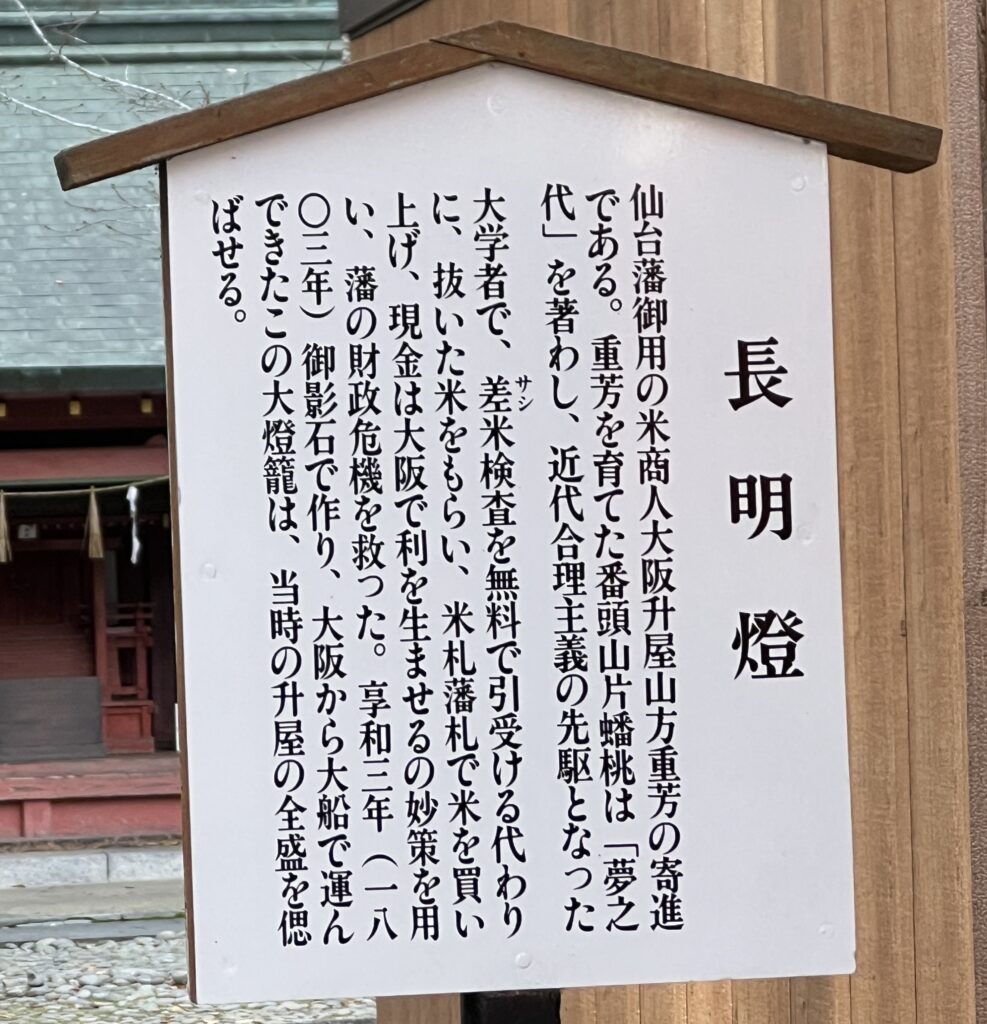 長明燈
仙台藩御用の米商人大阪升屋山方重芳の寄進
である。重芳を育てた番頭山片蟠桃は「夢之
代」を著わし、近代合理主義の先駆となった
大学者で、差米検査を無料で引受ける代わり
サシ
に、抜いた米をもらい、米札藩札で米を買い
上げ、現金は大阪で利を生ませるの妙策を用
い、藩の財政危機を救った。享和三年（一八
〇三年）御影石で作り、大阪から大船で運ん
できたこの大燈籠は、当時の升屋の全盛を偲
ばせる。